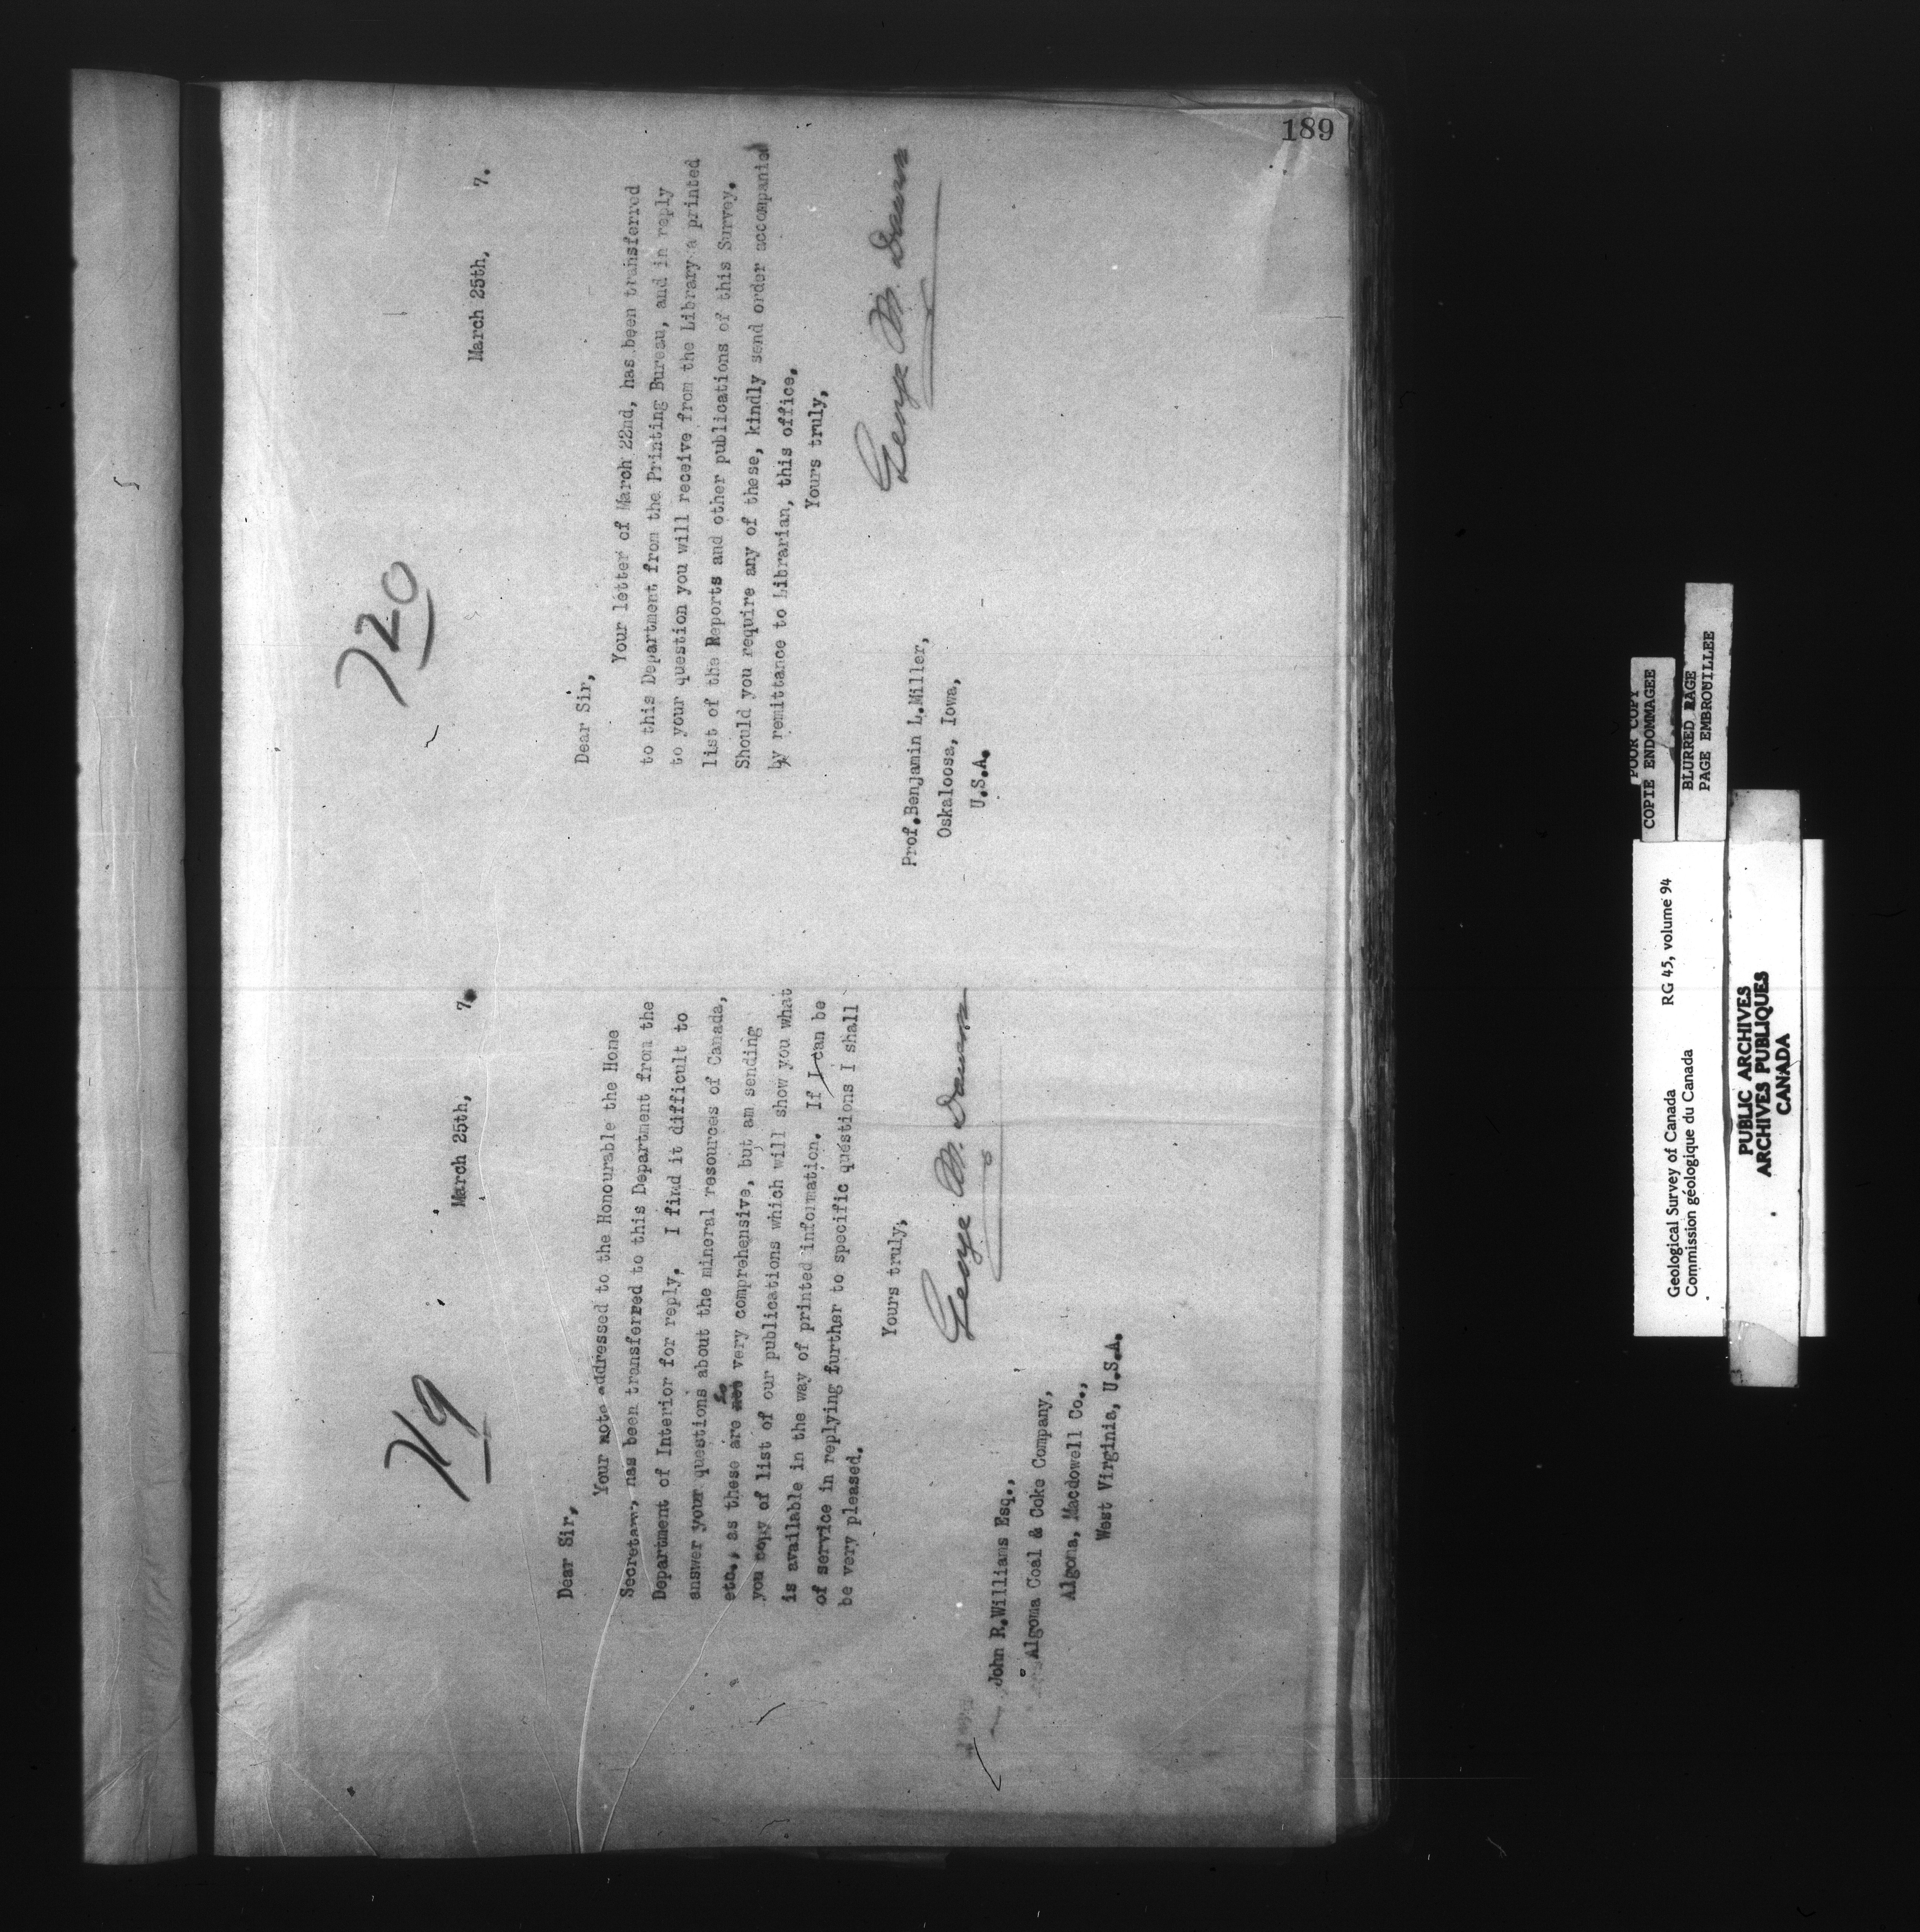 189
719
March 25th, 7.
Dear Sir,
Your note addressed to the Honourable the Home
Secretary, has been transferred to this Department from the
Department of Interior for reply. I find it difficult to
answer your questions about the mineral resources of Canada,
etc., as these are so very comprehensive, but am sending
you copy of list of our publications which will show you what
is available in the way of printed information. If I can be
of service in replying further to specific questions I shall
be very pleased.
Yours truly,
George M. Dawson
John R.Williams Esq.,
Algoma Coal & Coke Company,
Algoma, Macdowell Co.,
West Virginia, U.S.A.
720
March 25th, 7.
Dear Sir,
Your letter of March 22nd, has been transferred
to this Department from the Printing Bureau, and in reply
to your question you will receive from the Library a printed
list of the Reports and other publications of this Survey.
Should you require any of these, kindly send order accompanied
by remittance to Librarian, this office.
Yours truly,
George M. Dawson
Prof.Benjamin L.Miller,
Oskaloosa, Iowa,
U.S.A.
POOR COPY
COPIE ENDOMMAGEE
BLURRED PAGE
PAGE EMBROUILLEE
Geological Survey of Canada RG 45, volume 94
Commission géologique du Canada
PUBLIC ARCHIVES
ARCHIVES PUBLIQUES
CANADA